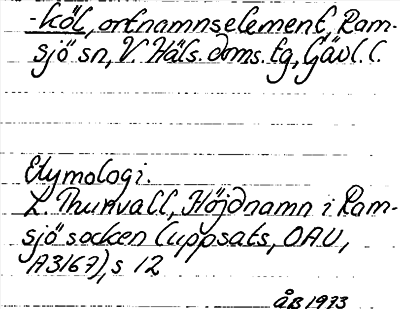 -köl, ortnamnselement, Ram-
sjö sn, V. Häls. doms. tg, Gävl. l.
Etymologi.
L. Thunvall, Höjdnamn i Ram-
sjö socken (uppsats, OAU,
A3167), s 12
åB 1973